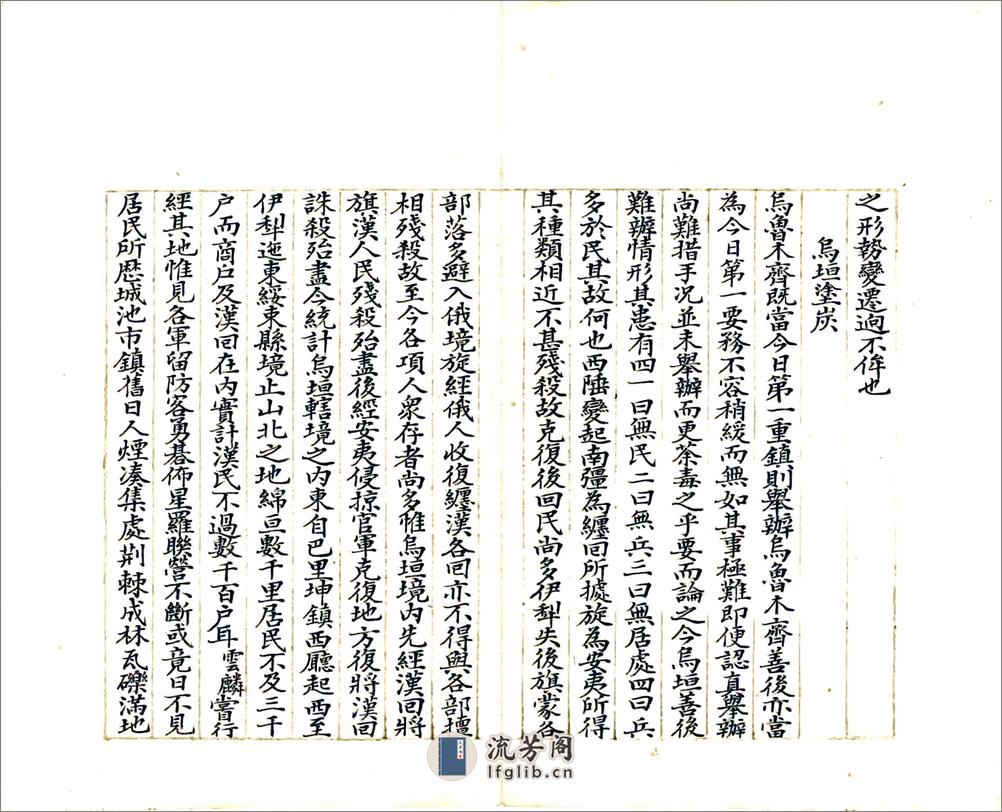 之形勢變遷逈不侔也
烏垣塗炭
烏魯木齊既當今日第一重鎮則舉辦烏魯木齊善後亦當
為今日第一要務不容稍緩而無如其事極難即便認真舉辦
尚難措手況並未舉辦而更荼毒之乎要而論之今烏垣善後
難辦情形其患有四一曰無民二曰無兵三曰無居處四曰兵
多於民其故何也西陲變起南疆為纏回所據旋為安夷所得
其種類相近不甚殘殺故克復後回民尚多伊犁失後旗蒙各
部落多避入俄境旋經俄人收復纏漢各回亦不得與各部擅
相殘殺故至今各項人眾存者尚多惟烏垣境內先經漢回將
旗漢人民殘殺殆盡後經安夷侵掠官軍克復地方復將漢回
誅殺殆盡今統計烏垣轄境之內東自巴里坤鎮西廳起西至
伊犁迤東綏東縣境止山北之地綿亘數千里居民不及三千
户而商戶及漢回在內實計漢民不過數千百户耳雲麟嘗行
經其地惟見各軍留防客勇碁佈星羅聯營不斷或竟日不見
居民所歷城池市鎮舊日人煙湊集處荆棘成林瓦礫滿地
流芳阁
lfglib.cn